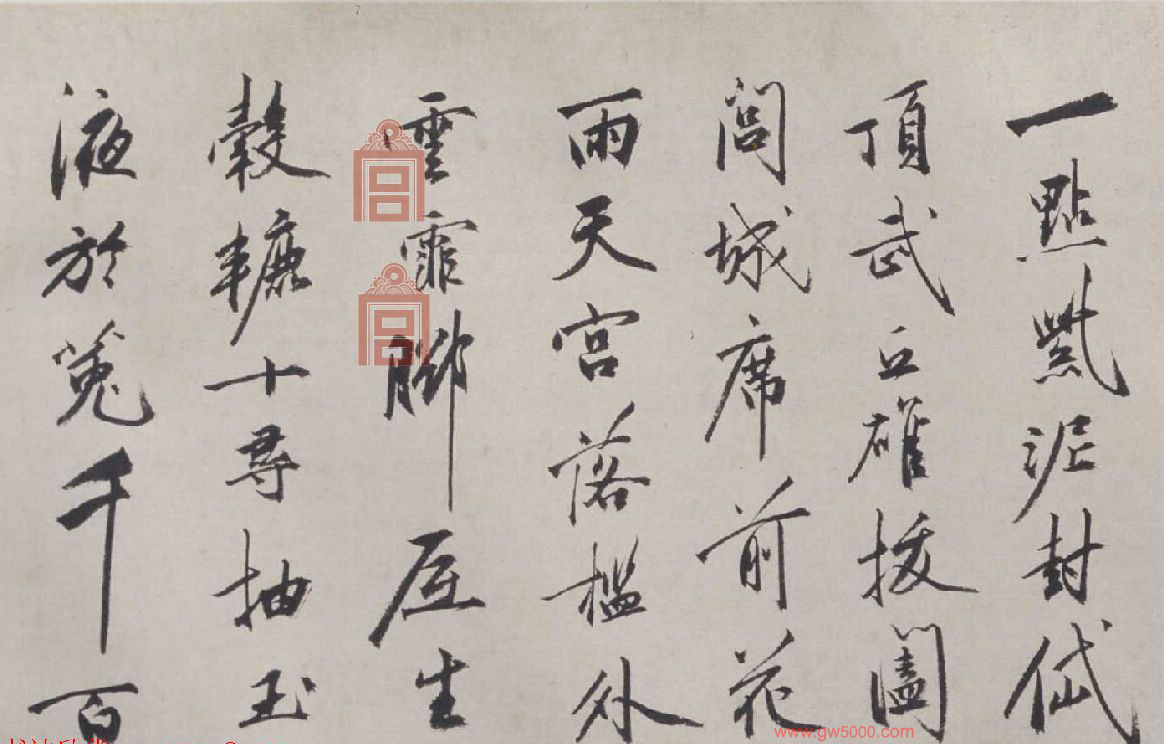 一點紫泥封岱
頂武丘雄拔闔
閭城席前花
雨天宮落檻外
雲霏腳底生
轂轆十尋抽玉
液於菟千百
www.gw5000.com